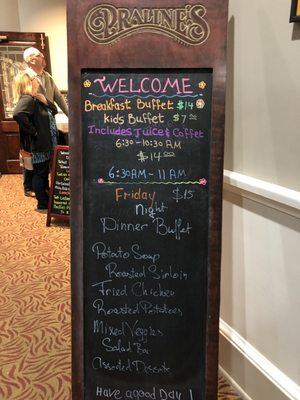 PRALINE'S
WELCOME
Breakfast Buffet $14
kids Buffet $7.00
Includes Juice & Coffet
6:30-10:30 AM
$14.00
6:30AM-11AM
Friday $15
Night
Dinner Buffet
Potato Soup
Roasted Sirloin
Fried Chicken
Roasted Potatoes
Mixed Veggies
Salad Bar
Assorted Desserts
Have a good Day!